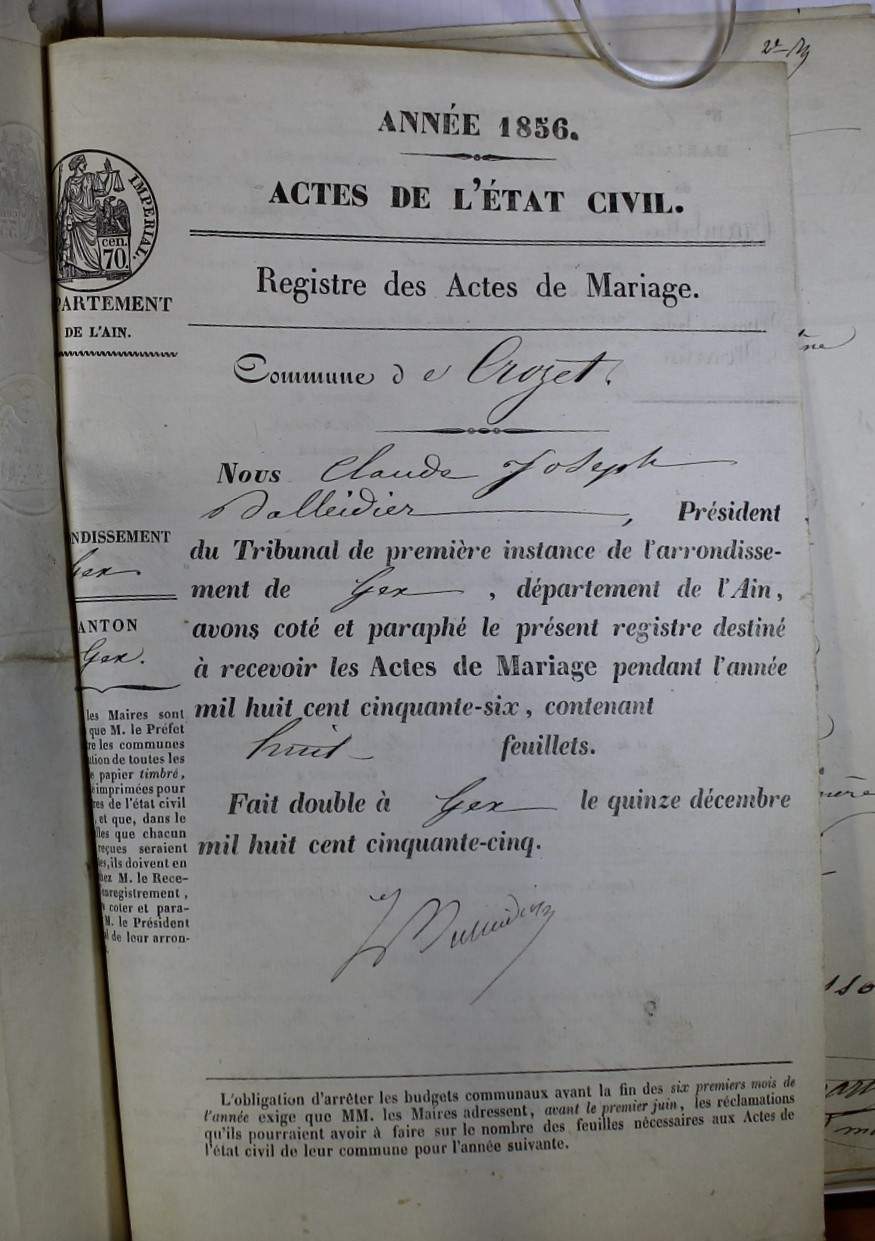 2e
ANNÉE 1856.
ACTES DE L'ÉTAT CIVIL.
IMPERIAL.
cen.
70.
PARTEMENT
DE L'AIN.
Registre des Actes de Mariage.
Commune de Crozet.
Nous Claude Joseph
Dalleidier, Président
du Tribunal de première instance de l'arrondisse-
ment de Gex, département de l'Ain,
avons coté et paraphé le présent registre destiné
à recevoir les Actes de Mariage pendant l'année
mil huit cent cinquante-six, contenant
huit feuillets.
Fait double à Gex le quinze décembre
mil huit cent cinquante-cinq.
NDISSEMENT
Gex
ANTON
Gex.
les Maires sont
que M. le Préfet
re les communes
tion de toutes les
papier timbré,
imprimées pour
res de l'état civil
, et que, dans le
lles que chacun
reçues seraient
es, ils doivent en
hez M. le Rece-
enregistrement,
coter et para-
M. le Président
l de leur arron-
L'obligation d'arrêter les budgets communaux avant la fin des six premiers mois de
l'année exige que MM. les Maires adressent, avant le premier juin, les réclamations
qu'ils pourraient avoir à faire sur le nombre des feuilles nécessaires aux Actes de
l'état civil de leur commune pour l'année suivante.